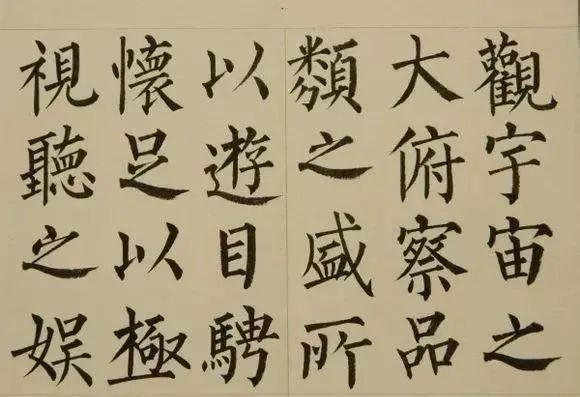 觀宇宙之
大俯察品
類之盛所
以遊目騁
懷足以極
視聽之娱